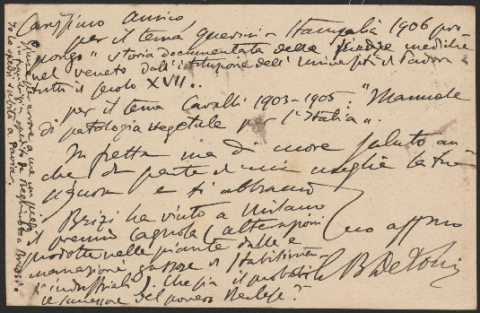 Carissimo amico,
per il tema Querini-Stampalia 1906 pro
pongo "storia documentata delle piazze mediche
nel veneto dall'istituzione dell'Università di Padova a
tutto il secolo XVII".
per il tema Cavalli 1903-1905: "Manuale
di patologia vegetale per l'Italia".
In fretta ma di cuore saluto an
che da parte di mia moglie la tua
signora e ti abbraccio
Brizi ha vinto a Milano
il premio Cagnola (alterazioni
prodotte nelle piante dalle e
manazioni gassose di stabilimen
ti industriali). Che sia il probabile
successore del povero Berlese?
tuo affmo
B De Toni
a me un
io lo spedii subito a Pavia.